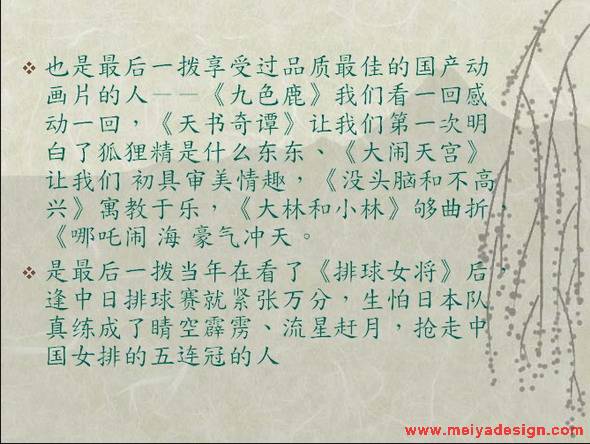 也是最后一拨享受过品质最佳的国产动
画片的人——《九色鹿》我们看一回感
动一回，《天书奇谭》让我们第一次明
白了狐狸精是什么东东、《大闹天宫》
让我们 初具审美情趣，《没头脑和不高
兴》寓教于乐，《大林和小林》够曲折，
《哪吒闹 海 豪气冲天。
是最后一拨当年在看了《排球女将》后，
逢中日排球赛就紧张万分，生怕日本队
真练成了晴空霹雳、流星赶月，抢走中
国女排的五连冠的人
www.meiyadesign.com